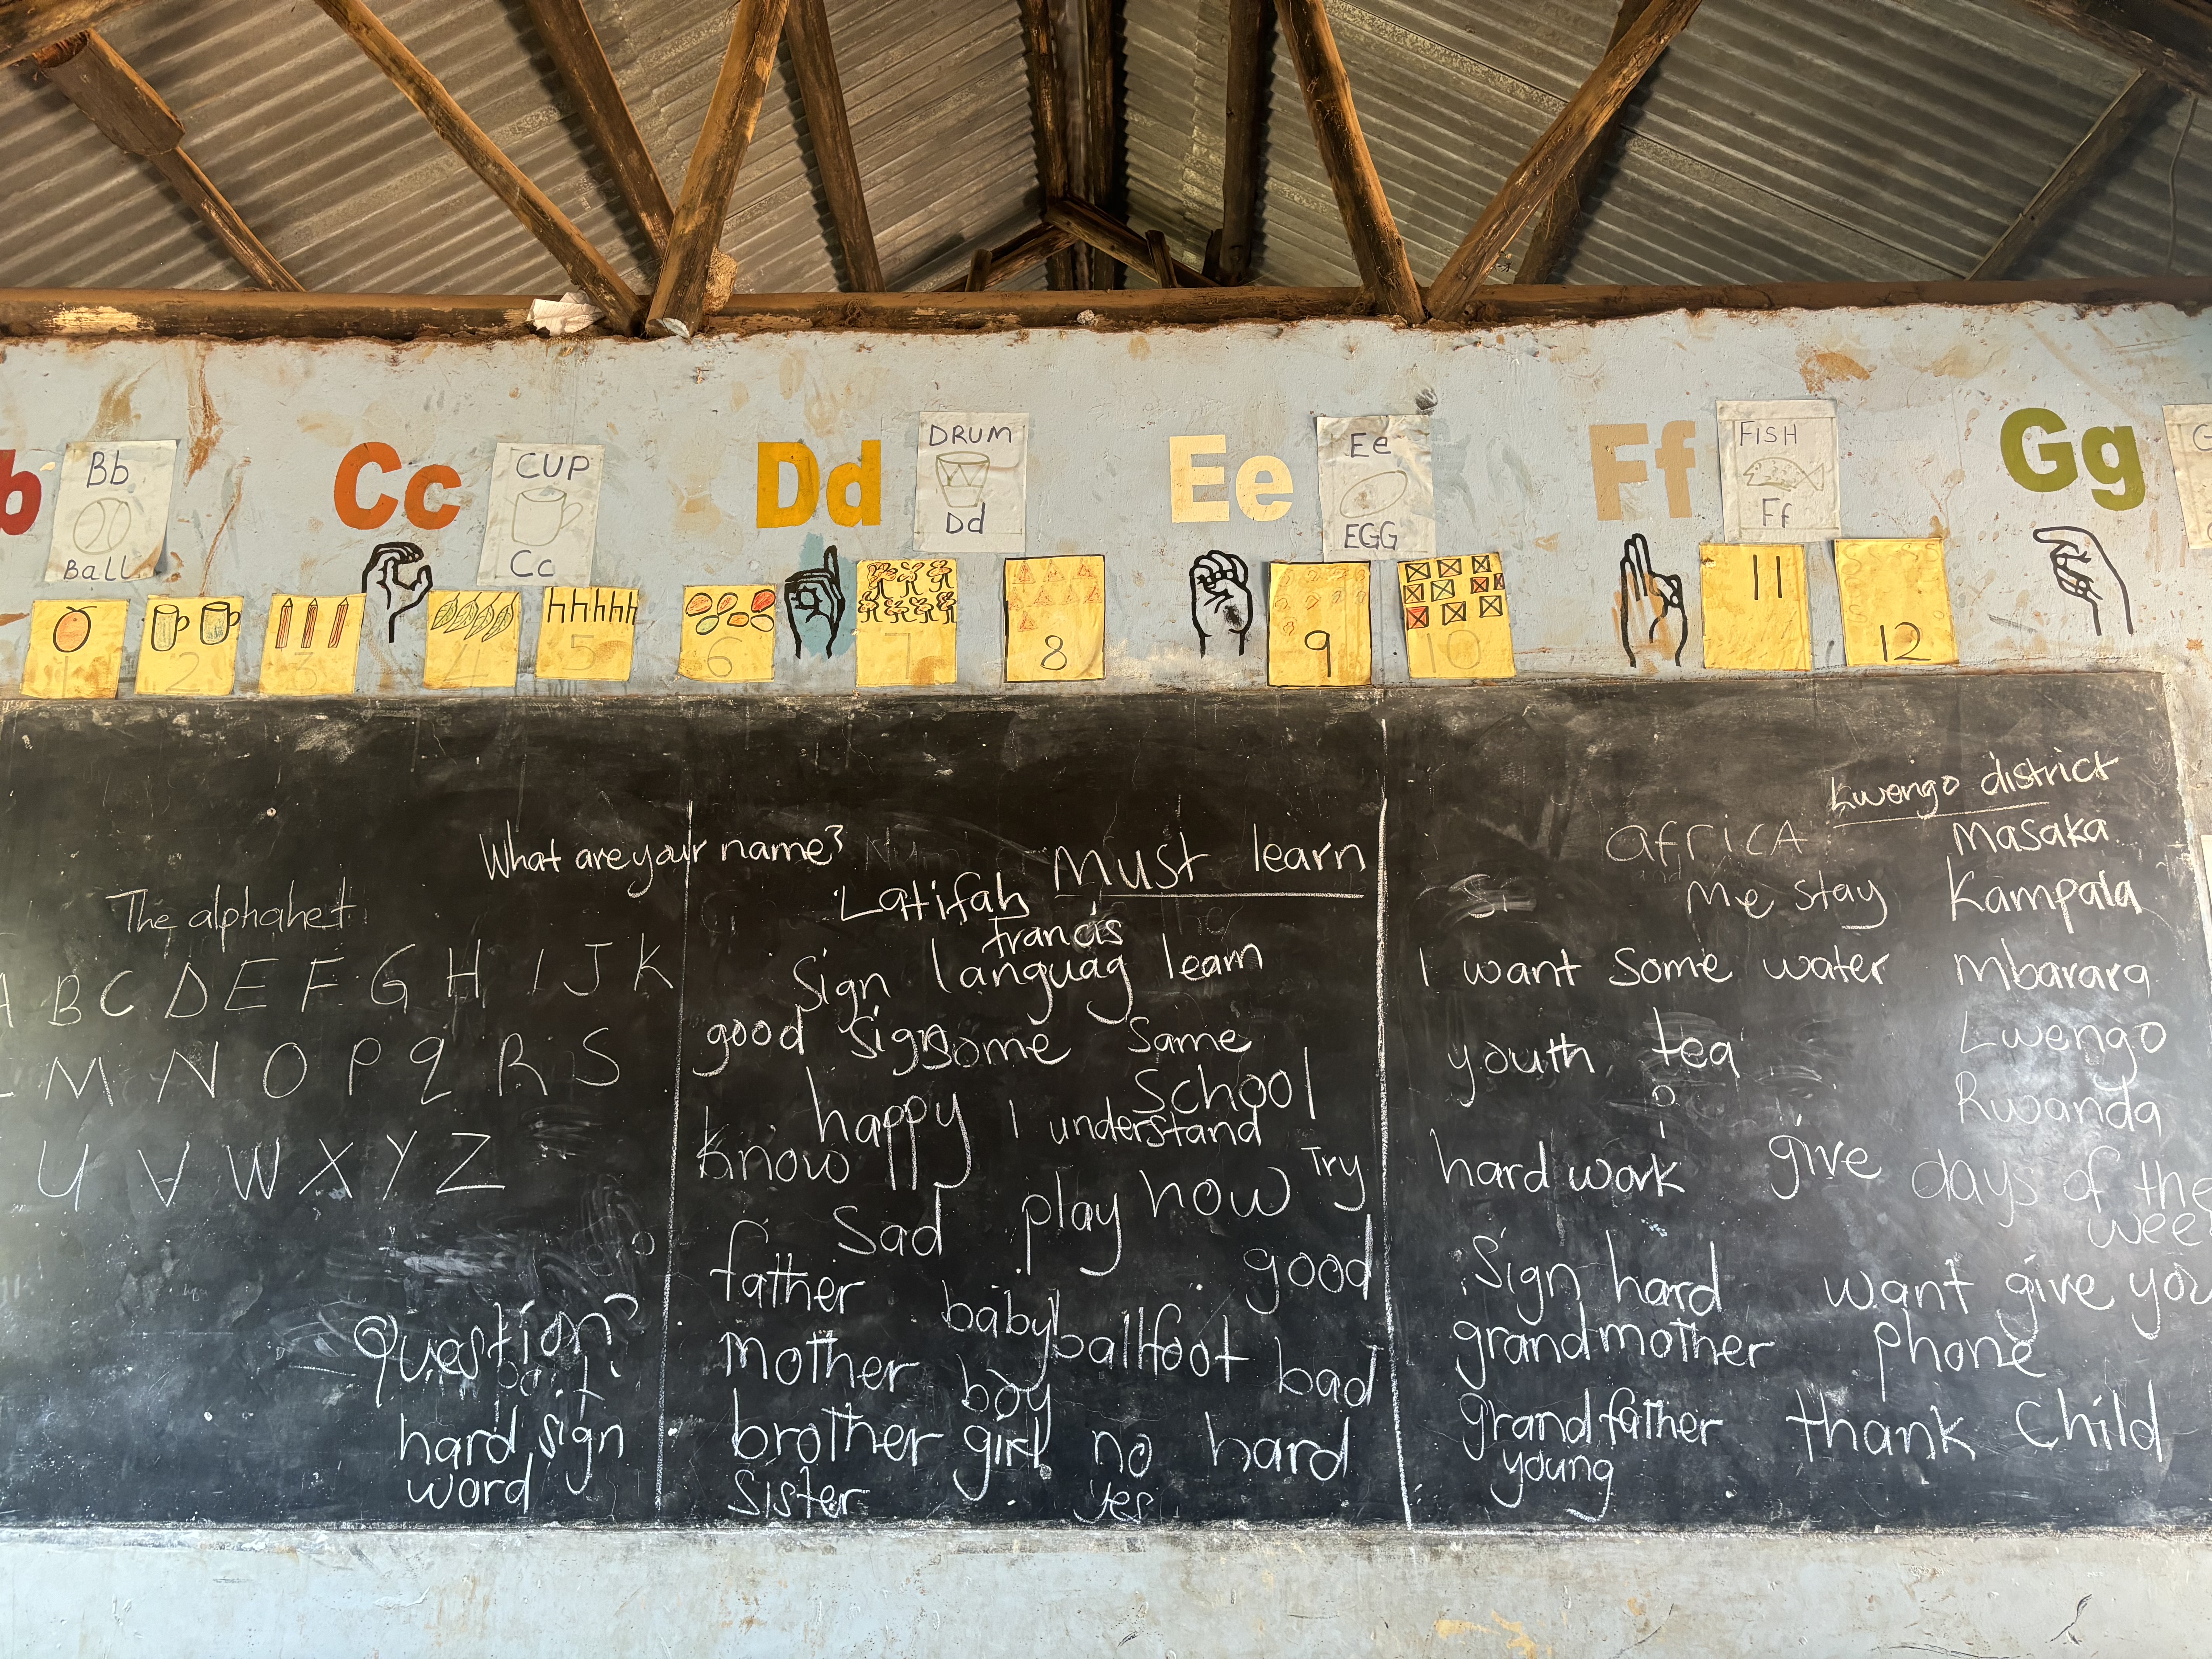 b
Bb
Ball
Cc
CUP
Cc
Dd
DRUM
Dd
Ee
Ee
EGG
Ff
FISH
Ff
Gg
1
2
3
4
hhhhh
5
6
7
8
9
10
11
12
What are your name?
The alphabet
A B C D E F G H I J K
L M N O P q R S
U V W X Y Z
question?
hard sign
word
Must learn
Latifah
francis
Sign languag learn
good sign some same
school
happy I understand
know
Try
Sad play how
father good
baby ballfoot
mother boy bad
brother girl no hard
sister yes
Lwengo district
africa Masaka
Me stay Kampala
I want some water Mbarara
youth tea Lwengo
Rwanda
hard work give days of the
wee
Sign hard want give you
grandmother phone
grandfather thank child
young